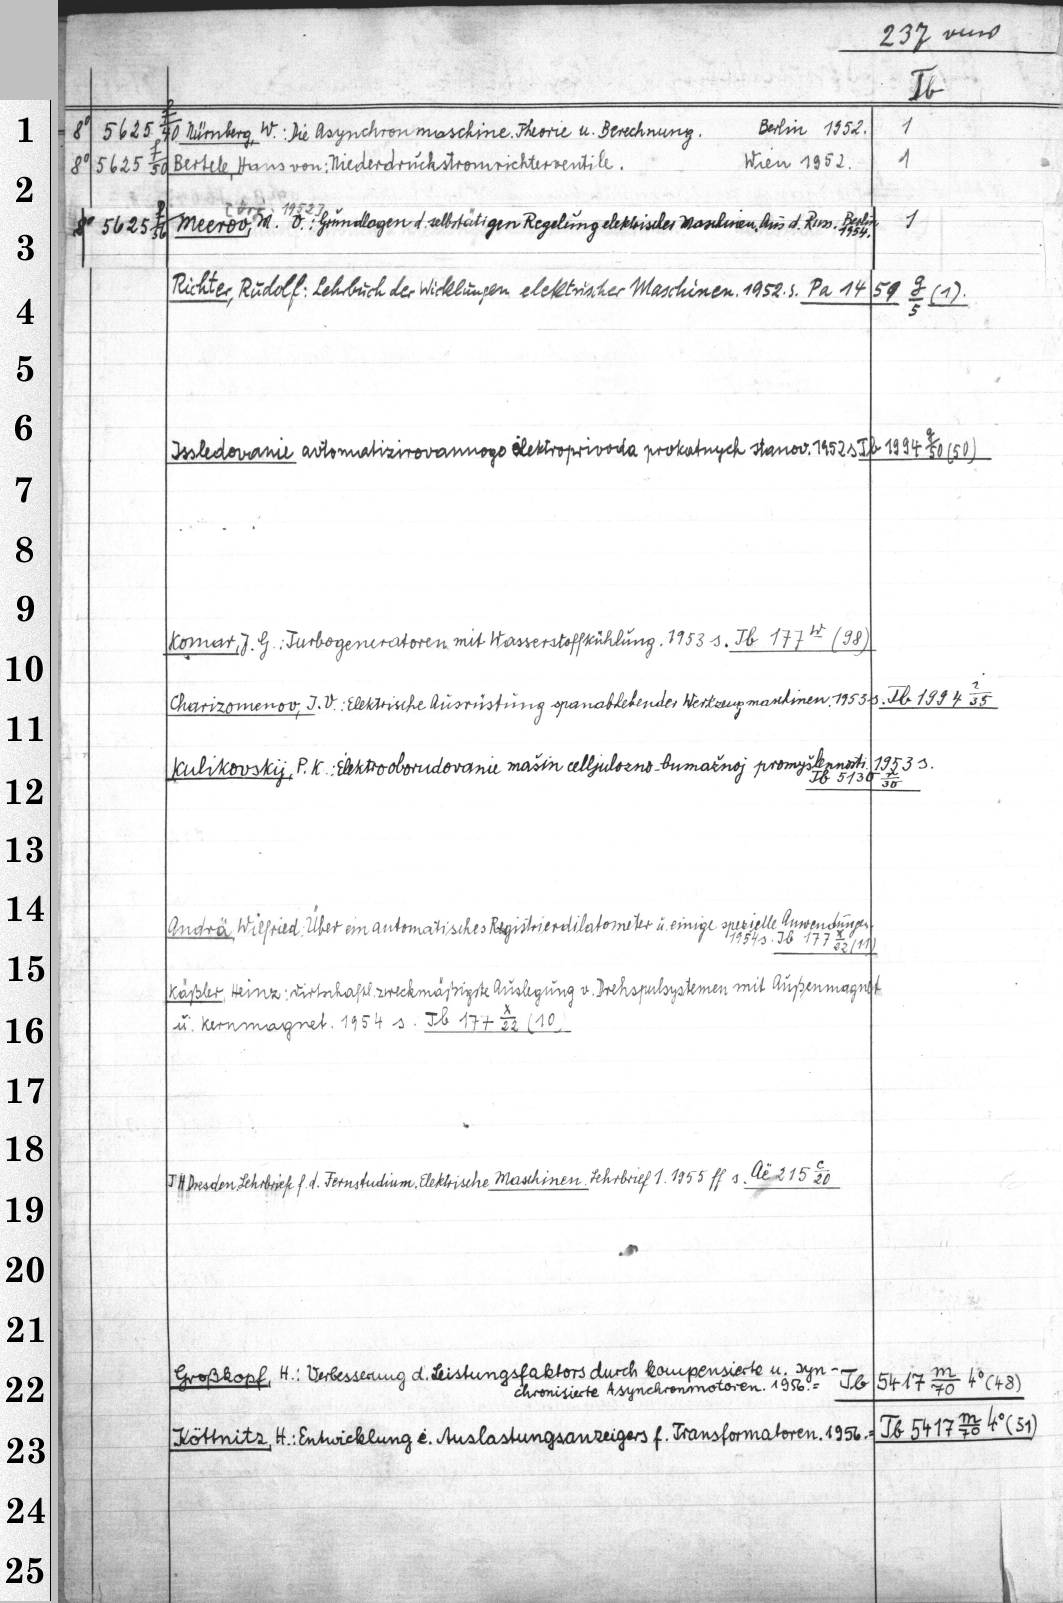 237
Tb
1 8° 5625 f/40 Nürnberg, W.: Die Asynchronmaschine. Theorie u. Berechnung. Berlin 1952. 1
8° 5625 f/50 Bertele, Hans von: Niederdruckstromrichterventile. Wien 1952. 1
2
3 8° 5625 f/56 Meerov, M. V.: Grundlagen d. selbsttätigen Regelung elektrischer Maschinen. Aus d. Russ. Berlin 1954. 1
4 Richter, Rudolf: Lehrbuch der Wicklungen elektrischer Maschinen. 1952. s. Pa 1459 g/5 (1).
5
6
Issledovanie avtomatizirovannogo elektroprivoda prokatnych stanov. 1952 s Tb 1994 q/50 (50)
7
8
9
10 Komar, J. G.: Turbogeneratoren mit Wasserstoffkühlung. 1953 s. Tb 177 w (98)
11 Charizomenov, I. V.: Elektrische Ausrüstung spanabhebender Werkzeugmaschinen. 1953 s. Tb 1994 i/35
12 Kulikovskij, P. K.: Elektrooborudovanie mašin celljulozno-bumažnoj promyšlennosti. 1953 s.
Tb 5130 x/30
13
14
Andrä, Wilfried: Über ein automatisches Registrierdilatometer u. einige spezielle Anwendungen.
1954 s. Tb 177 x/22 (11)
15
Käßler, Heinz: Wirtschaftl. zweckmäßigste Auslegung v. Drehspulsystemen mit Außenmagnet
16 u. Kernmagnet. 1954 s. Tb 177 x/22 (10)
17
18
TH Dresden. Lehrbriefe f. d. Fernstudium. Elektrische Maschinen. Lehrbrief 1. 1955 ff s. Aë 215 c/20
19
20
21
22 Großkopf, H.: Verbesserung d. Leistungsfaktors durch kompensierte u. syn-
chronisierte Asynchronmotoren. 1956. = Tb 5417 m/70 4° (48)
23 Köttnitz, H.: Entwicklung e. Auslastungsanzeigers f. Transformatoren. 1956. = Tb 5417 m/70 4° (51)
24
25